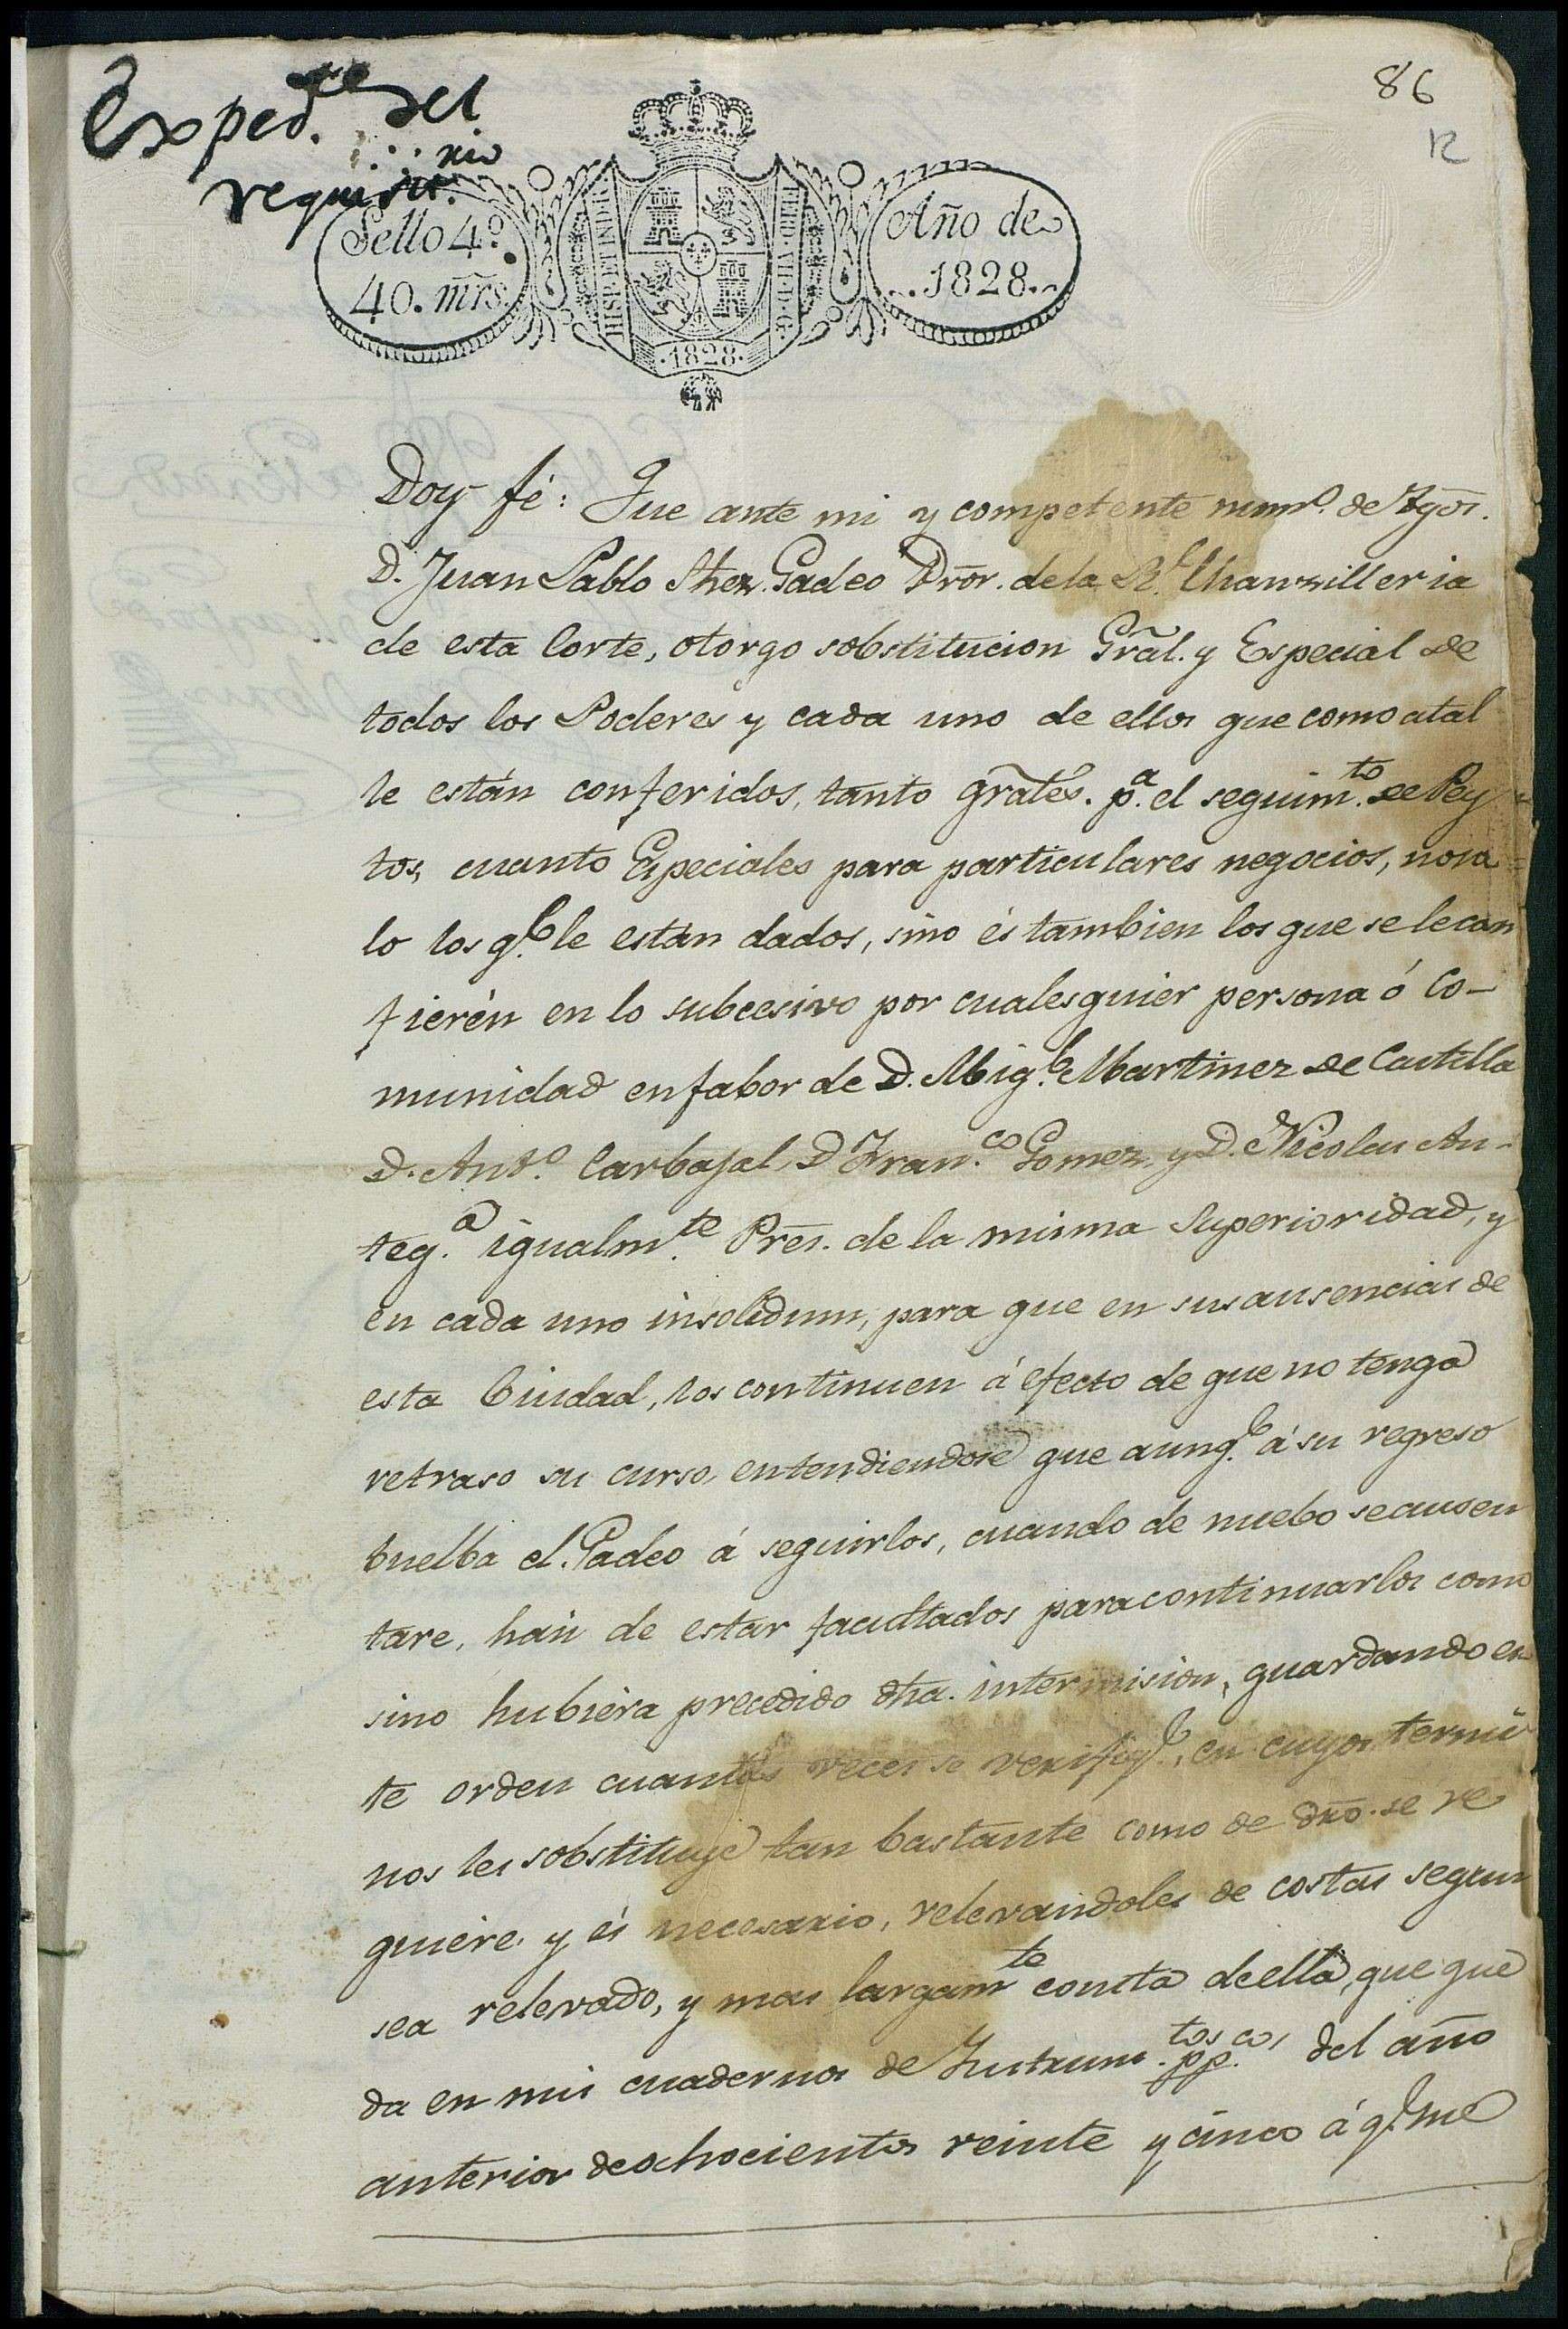 86
12
Exped.te del
requisit.rio
Sello 4.º
40. mrs.
HISP. ET IND. R.
FERD. VII. D. G.
·1828·
Año de
1828
Doy fé: Que ante mi y competente num.o de tgos.
D. Juan Pablo Shez. Gadeo Pror. de la R.l Chanzilleria
de esta Corte, otorgo sobstitucion Gral. y Especial de
todos los Poderes y cada uno de ellos que como atal
le están conferidos, tanto grales. p.a el seguim.to de Pey
tos, cuanto Especiales para particulares negocios, noso
lo los q.e le están dados, sino és tambien los que se le con
fierén en lo subcesivo por cualesquier persona ó Co-
munidad enfabor de D. Mig.l Martinez de Castilla
D. Ant.o Carbajal, D Fran.co Gomez y D. Nicolas An-
teq.a igualm.te Pres. de la misma Superioridad, y
en cada uno insolidum, para que en sus ausencias de
esta Ciudad, los continuen á efecto de que no tenga
retraso su curso, entendiendose que aunq.e á su regreso
buelba el Gadeo á seguirlos, cuando de nuebo se ausen
tare, hán de estar facultados para continuarlos como
sino hubiera precedido dha. intermision, guardando es
te orden cuantas veces se verifiq.e, en cuyos termi
nos les sobstituye tan bastante como de dro. se re
quiere y és necesario, relevandoles de costas segun
sea relevado, y mas largam.te consta de ella, que que
da en mis cuadernos de Instrum.tos pp.cos del año
anterior de ochocientos veinte y cinco á q.e me